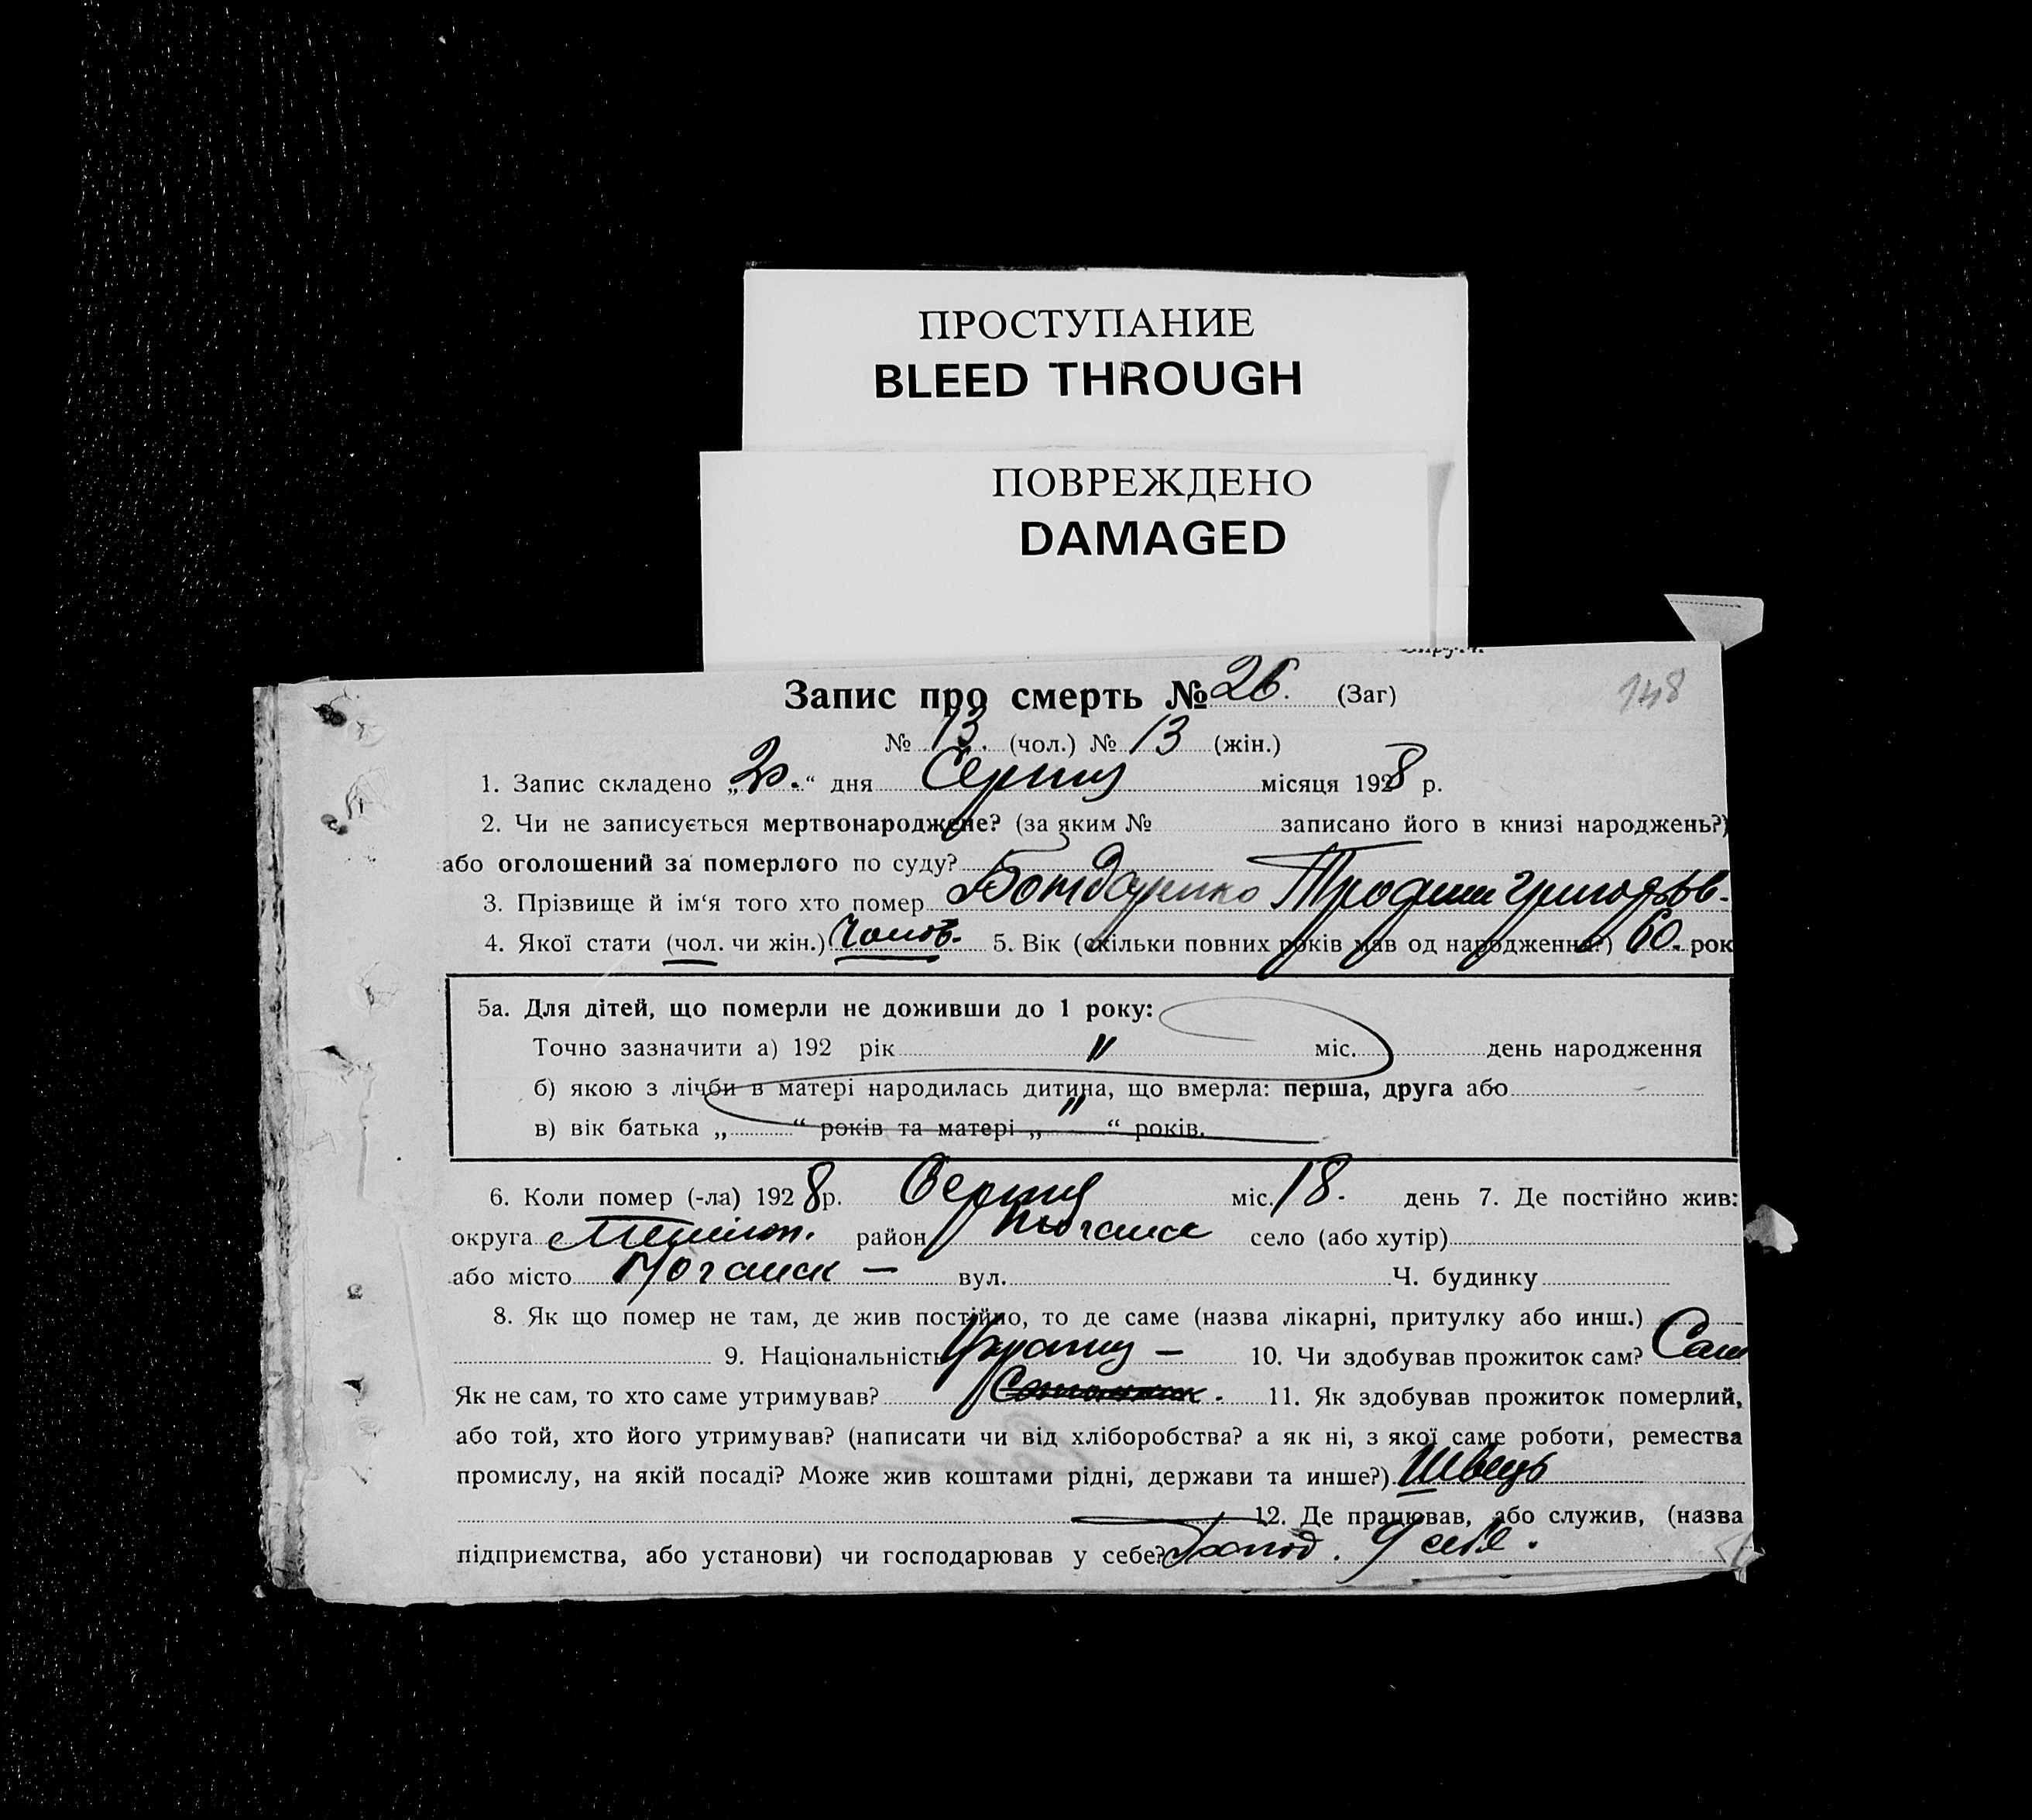 ПРОСТУПАНИЕ
BLEED THROUGH
ПОВРЕЖДЕНО
DAMAGED
148
Запис про смерть № 26. (Заг)
№ 13. (чол.) № 13 (жін.)
1. Запис складено „20.“ дня Серпня місяця 1928 р.
2. Чи не записується мертвонароджене? (за яким № записано його в книзі народжень?)
або оголошений за померлого по суду?
3. Прізвище й ім‘я того хто помер Бондаренко Трофим Григорьев.
4. Якої стати (чол. чи жін.) Чолов. 5. Вік (скільки повних років мав од народження?) 60. рок
5а. Для дітей, що померли не доживши до 1 року:
Точно зазначити а) 192 рік „ міс. день народження
б) якою з лічби в матері народилась дитина, що вмерла: перша, друга або
в) вік батька „ “ років та матері „ “ років.
6. Коли помер (-ла) 1928 р. Серпня міс. 18. день 7. Де постійно жив:
округа район село (або хутір)
або місто Ногайск — вул. Ч. будинку
8. Як що помер не там, де жив постійно, то де саме (назва лікарні, притулку або инш.)
9. Національність — 10. Чи здобував прожиток сам? Сам
Як не сам, то хто саме утримував? 11. Як здобував прожиток померлий,
або той, хто його утримував? (написати чи від хліборобства? а як ні, з якої саме роботи, ремества
промислу, на якій посаді? Може жив коштами рідні, держави та инше?) Швець
12. Де працював, або служив, (назва
підприємства, або установи) чи господарював у себе? Господ. У себе.